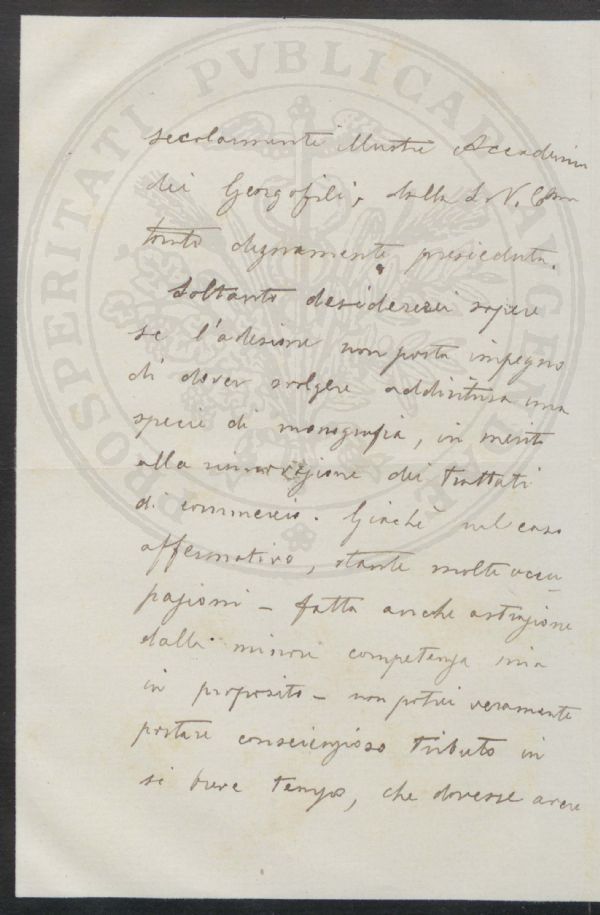 PROSPERITATI PVBLICAE AVGENDAE
secolarmente illustre Accademia
dei Georgofili, dalla S. V.
tanto degnamente presieduta.
Soltanto desidererei sapere
se l'adesione non porta impegno
di dover svolgere addirittura una
specie di monografia, in merito
alla rinnovazione dei trattati
di commercio. Giachè nel caso
affermativo, stante molte occu
pazioni – fatta anche astrazione
dalla minore competenza mia
in proposito – non potrei veramente
portare conscienzioso tributo in
sì breve tempo, che dovesse avere